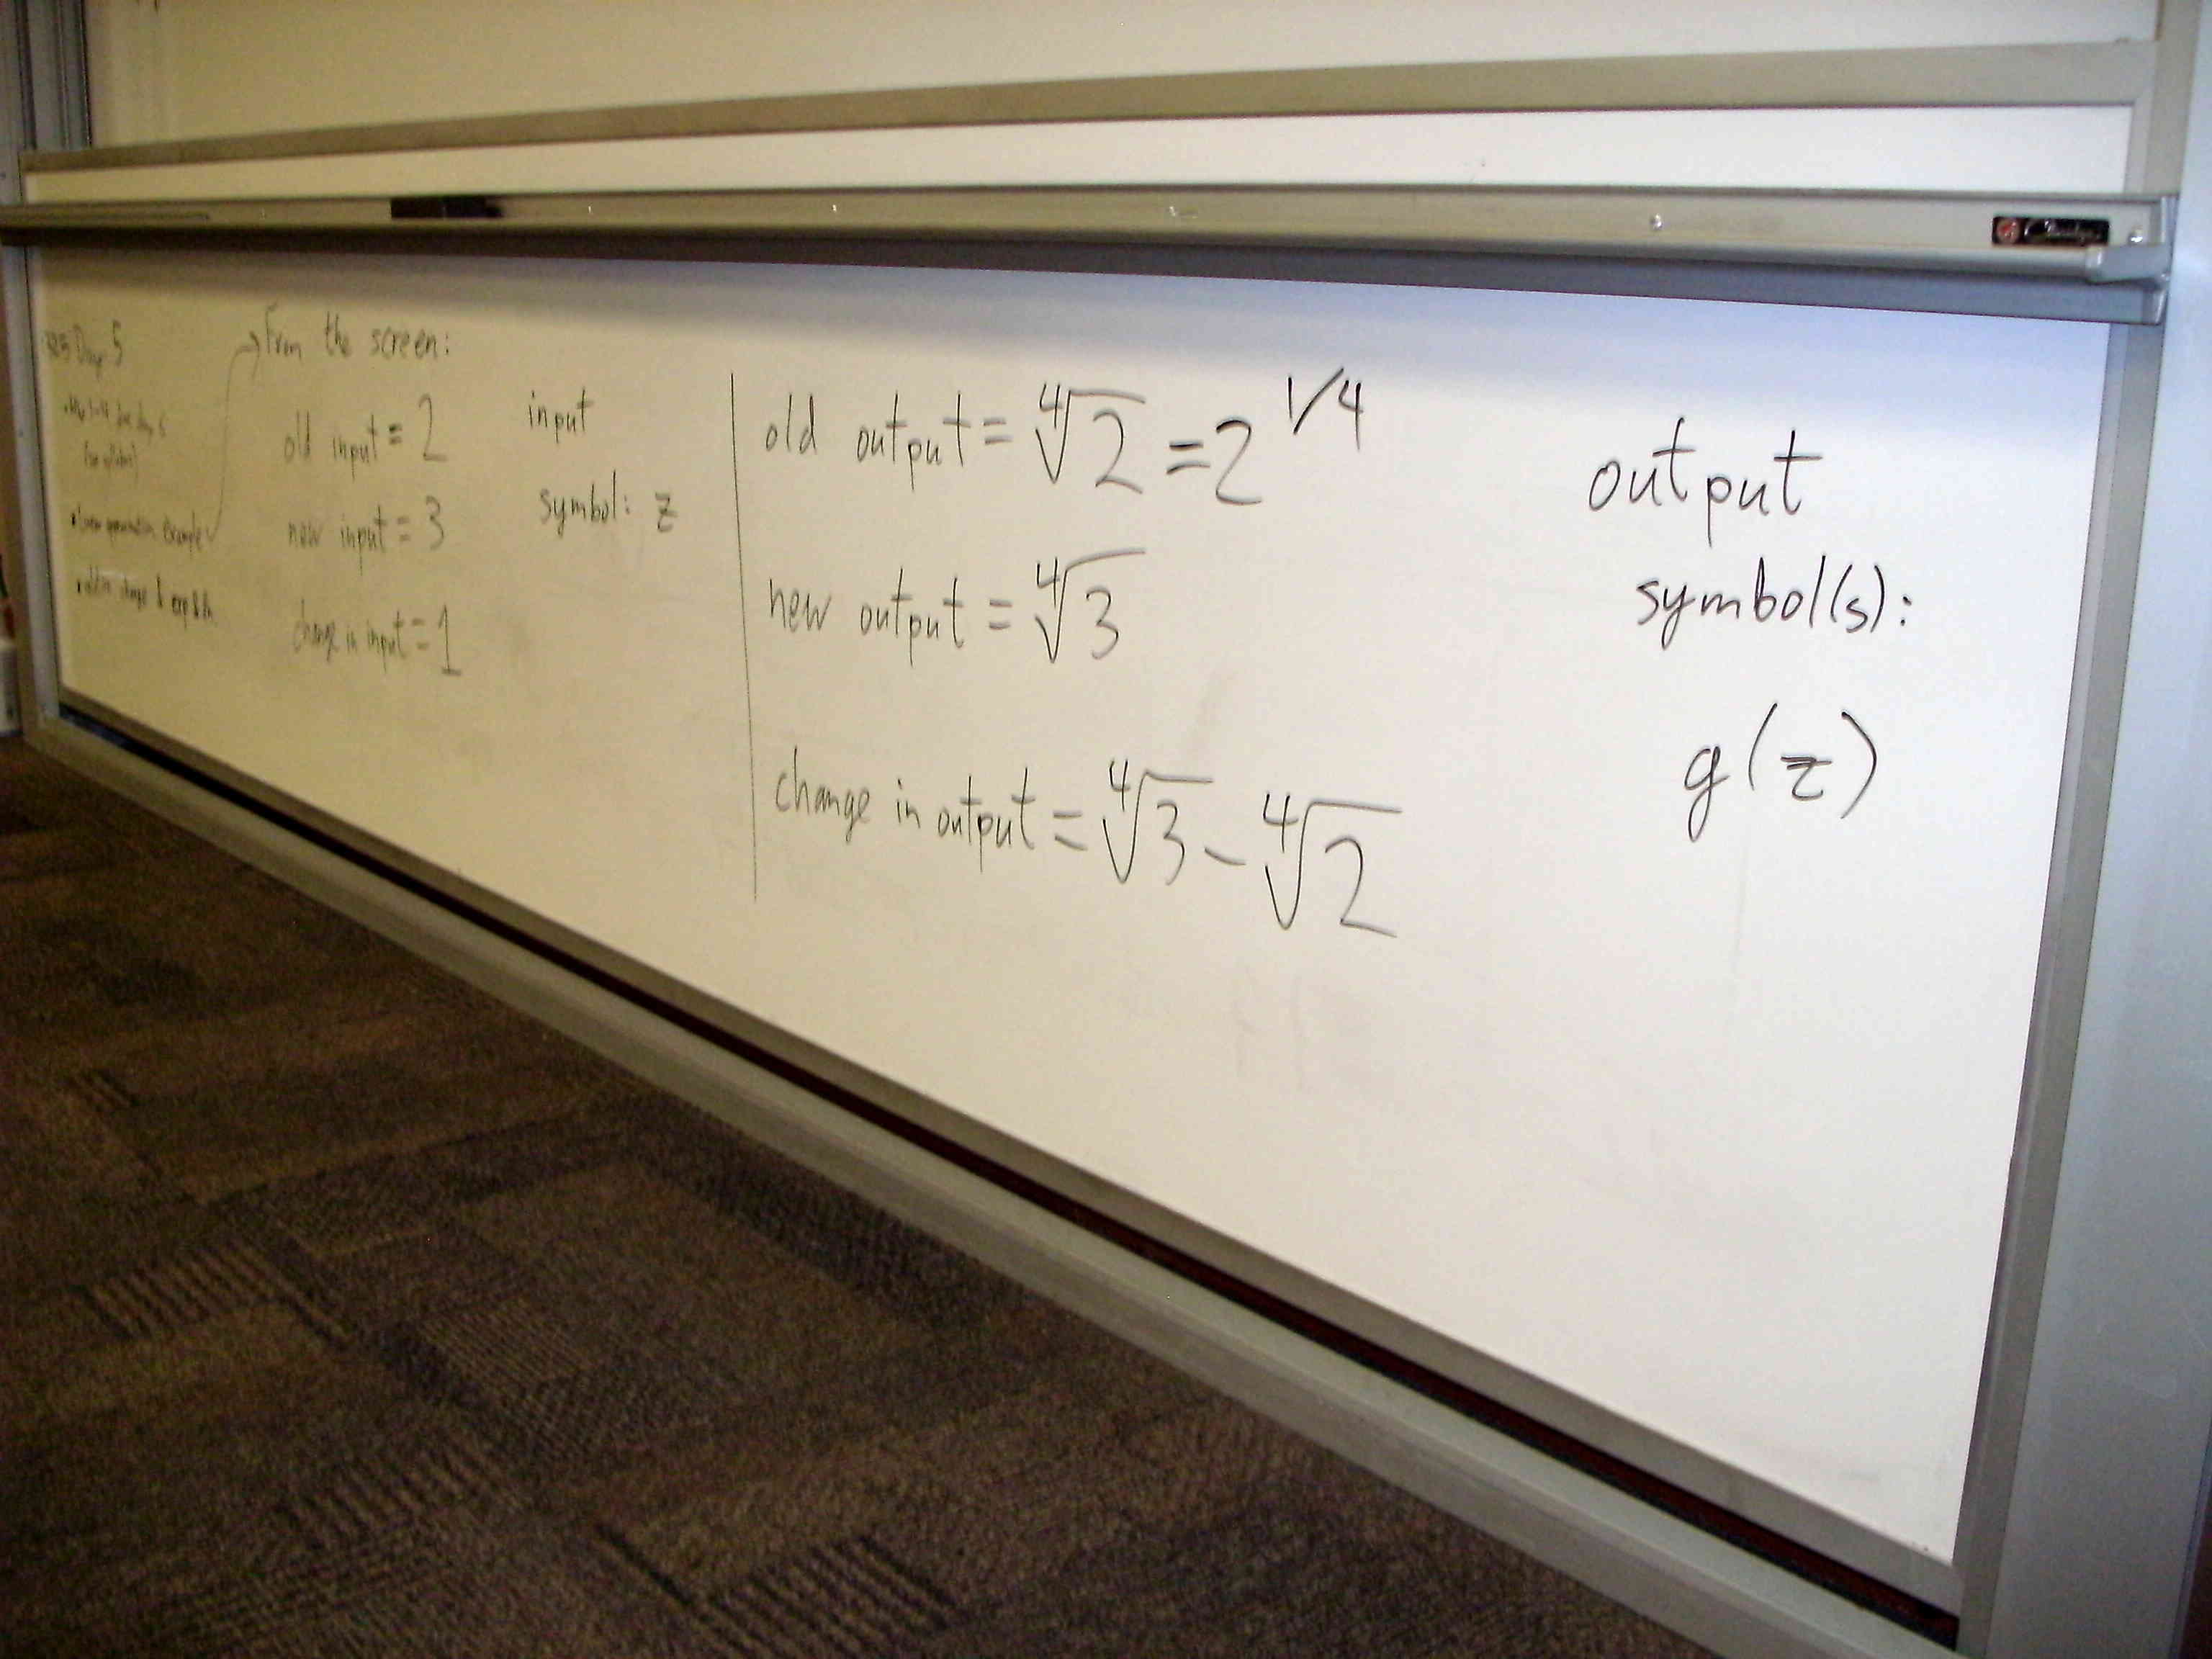 Day 5
From the screen:
old input = 2
new input = 3
change in input = 1
input
symbol: z
old output = ∜2 = 2^1/4
new output = ∜3
change in output = ∜3 - ∜2
output
symbol(s):
g(z)